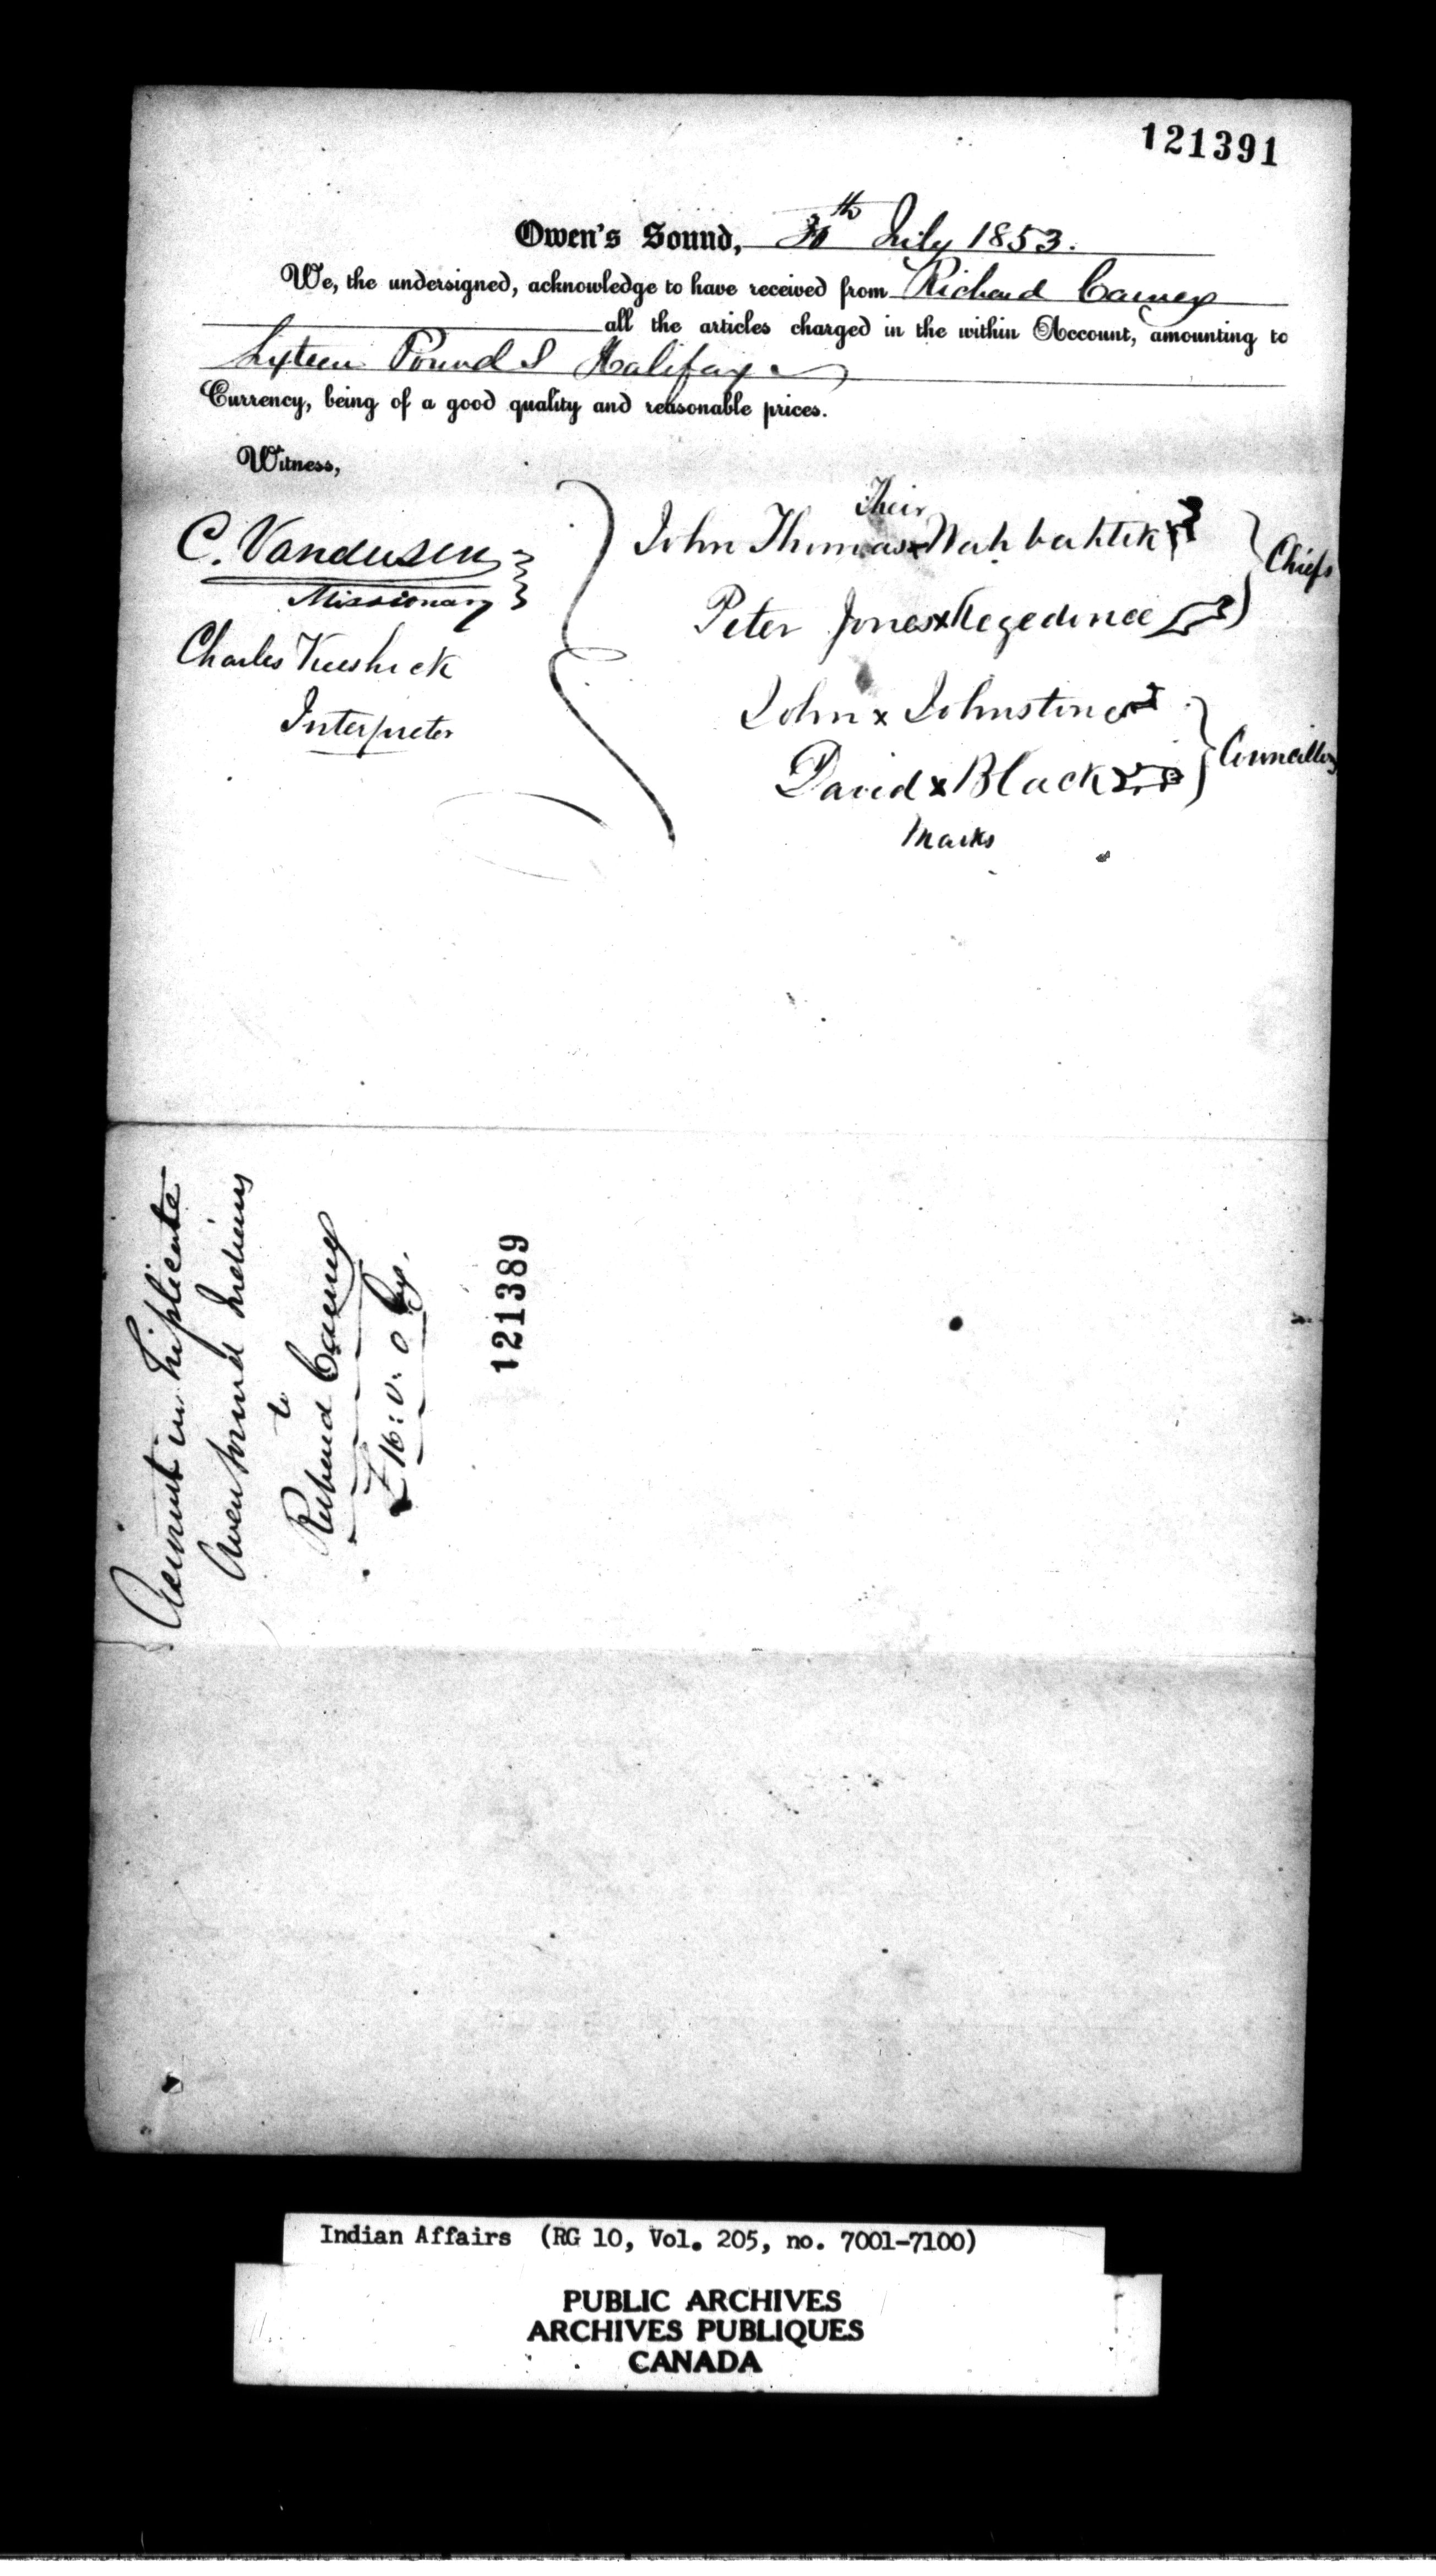 121391
Owen's Sound, 30th July 1853.
We, the undersigned, acknowledge to have received from Richard Carney
all the articles charged in the within Account, amounting to
Sixteen Pounds Halifax
Currency, being of a good quality and reasonable prices.
Witness,
Their
C. Vandusen
Missionary
Charles Keeshick
Interpreter
John Thomas x Wahbahtik
Peter Jones x Kegedonce
Chiefs
John x Johnston
David x Black
Councillors
Marks
Account in Triplicate
Owen Sound Indians
to
Richard Carney
£16:0.0 Cy.
121389
Indian Affairs (RG 10, Vol. 205, no. 7001-7100)
PUBLIC ARCHIVES
ARCHIVES PUBLIQUES
CANADA